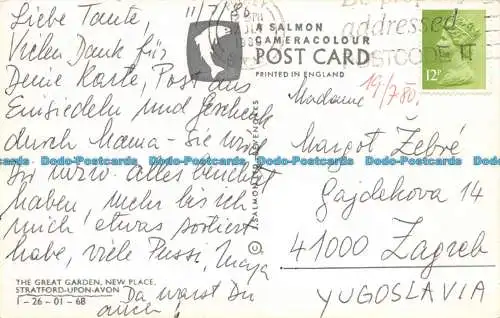 11/7/86
Liebe Tante,
Vielen Dank für
Deine Karte, Post aus
Einsiedeln und Geschenk
durch Mama - Sie wird
Dir inzw. alles berichtet
haben, mehr bis ich
mich etwas sortiert
habe, viele Pussi, Maja
Da warst Du
auch!
A SALMON
CAMERACOLOUR
POST CARD
PRINTED IN ENGLAND
© J. SALMON LTD., SEVENOAKS
addressed
POSTCODE IT
12P
19/7 80.
Madame
Margot Žebré
Gajdekova 14
41000 Zagreb
YUGOSLAVIA
THE GREAT GARDEN, NEW PLACE,
STRATFORD-UPON-AVON
1-26-01-68
Dodo-Postcards Dodo-Postcards Dodo-Postcards Dodo-Postcards Dodo-Postcards Dodo-Postcards